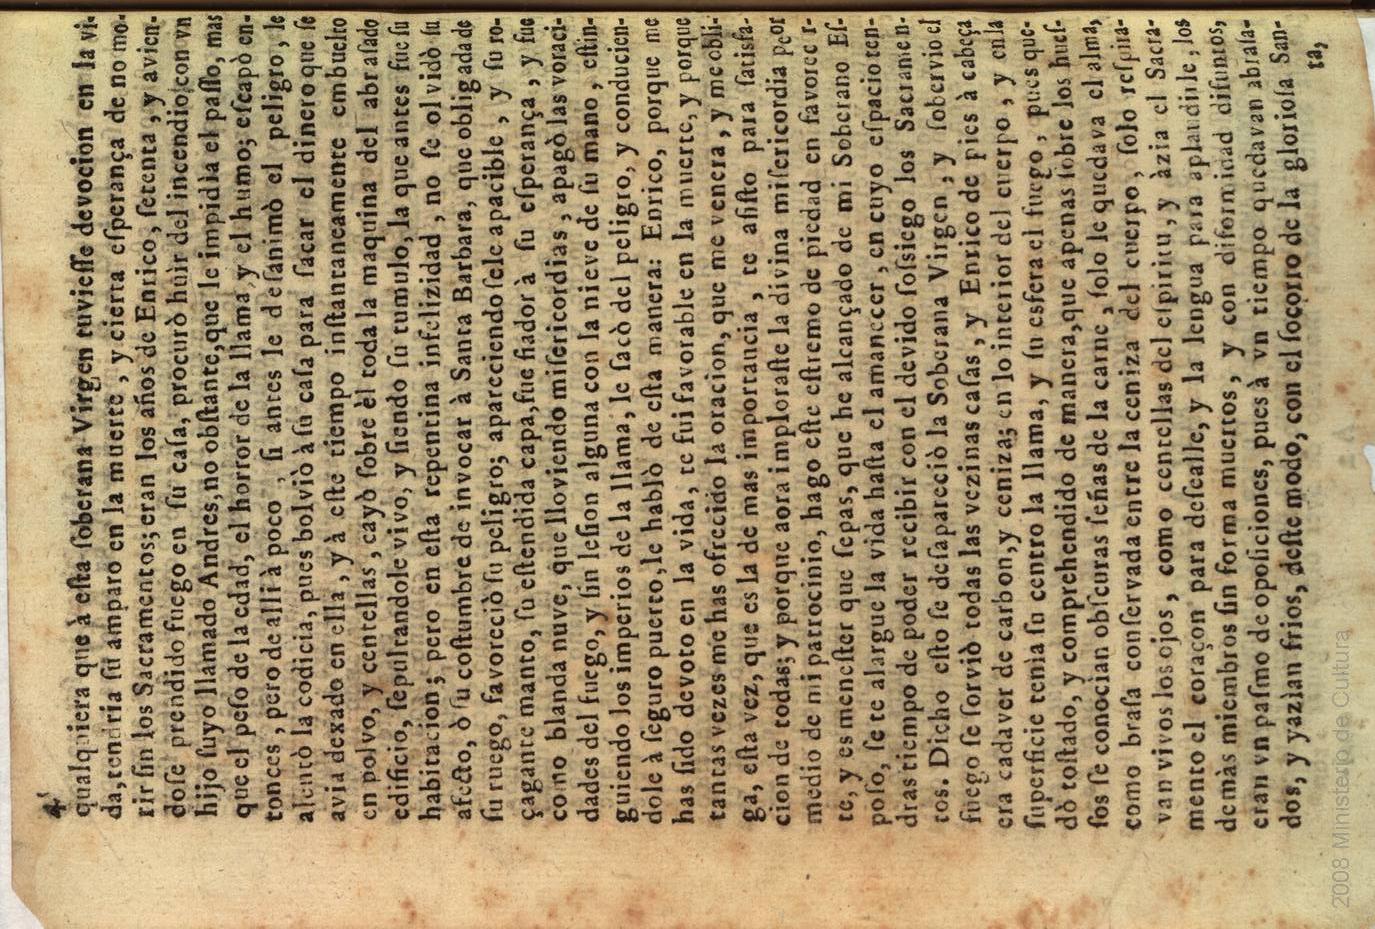 4
qualquiera que à eſta ſoberana Virgen tuvieſſe devocion en la vi-
da, tendria ſu amparo en la muerte, y cierta eſperança de no mo-
rir ſin los Sacramentos; eran los años de Enrico, ſetenta, y avien-
doſe prendido fuego en ſu caſa, procurò húir del incendio, con vn
hijo ſuyo llamado Andres, no obſtante, que le impidia el paſſo, mas
que el peſo de la edad, el horror de la llama, y el humo; eſcapò en-
tonces, pero de alli à poco, ſi antes le deſanimò el peligro, le
alentò la codicia, pues bolviò à ſu caſa para ſacar el dinero que ſe
avia dexado en ella, y à eſte tiempo inſtantaneamente embuelto
en polvo, y centellas, cayò ſobre èl toda la maquina del abraſado
edificio, ſepultandole vivo, y ſiendo ſu tumulo, la que antes fue ſu
habitacion; pero en eſta repentina infelizidad, no ſe olvidò ſu
afecto, ò ſu coſtumbre de invocar à Santa Barbara, que obligada de
ſu ruego, favoreciò ſu peligro; apareciendoſele apacible, y ſu ro-
çagante manto, ſu eſtendida capa, fue fiador à ſu eſperança, y fue
como blanda nuve, que lloviendo miſericordias, apagò las voraci-
dades del fuego, y ſin leſion alguna con la nieve de ſu mano, eſtin-
guiendo los imperios de la llama, le ſacò del peligro, y conducien-
dole à ſeguro puerto, le hablò de eſta manera: Enrico, porque me
has ſido devoto en la vida, te fui favorable en la muerte, y porque
tantas vezes me has ofrecido la oracion, que me venera, y me obli-
ga, eſta vez, que es la de mas importancia, te aſiſto para ſatisfa-
cion de todas; y porque aora imploraſte la divina miſericordia por
medio de mi patrocinio, hago eſte eſtremo de piedad en favorecer-
te, y es meneſter que ſepas, que he alcançado de mi Soberano Eſ-
poſo, ſe te alargue la vida haſta el amanecer, en cuyo eſpacio ten-
dras tiempo de poder recibir con el devido ſoſsiego los Sacramen-
tos. Dicho eſto ſe deſapareciò la Soberana Virgen, y ſobervio el
fuego ſe ſorviò todas las vezinas caſas, y Enrico de pies à cabeça
era cadaver de carbon, y ceniza; en lo interior del cuerpo, y en la
ſuperficie tenia ſu centro la llama, y ſu esfera el fuego, pues que-
dò toſtado, y comprehendido de manera, que apenas ſobre los hueſ-
ſos ſe conocian obſcuras ſeñas de la carne, ſolo le quedava el alma,
como braſa conſervada entre la ceniza del cuerpo, ſolo reſpira-
van vivos los ojos, como centellas del eſpiritu, y àzia el Sacra-
mento el coraçon para deſealle, y la lengua para aplaudirle, los
demàs miembros ſin forma muertos, y con diformidad difuntos,
eran vn paſmo de opoſiciones, pues à vn tiempo quedavan abraſa-
dos, y yazìan frios, deſte modo, con el ſocorro de la glorioſa San-
ta,
2008 Ministerio de Cultura